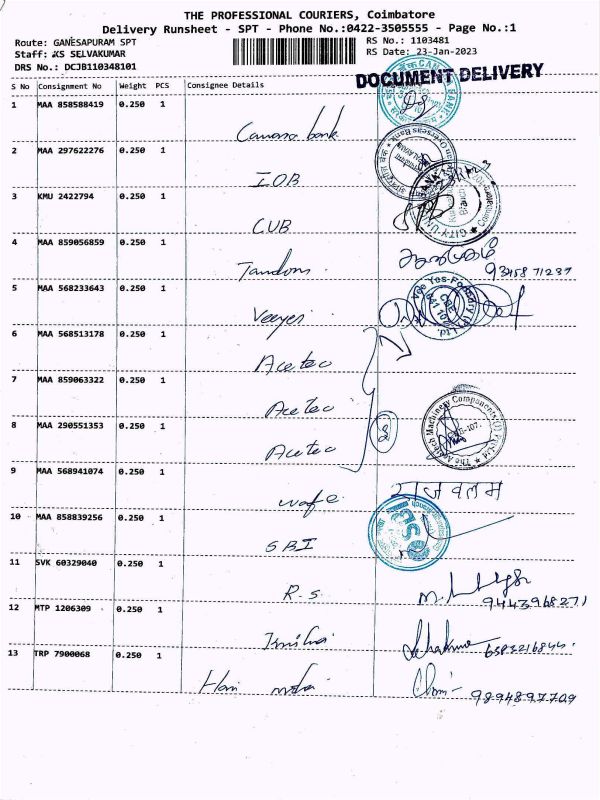 THE PROFESSIONAL COURIERS, Coimbatore
Delivery Runsheet - SPT - Phone No.:0422-3505555 - Page No.:1
Route: GANESAPURAM SPT
RS No.: 1103481
Staff: KS SELVAKUMAR
RS Date: 23-Jan-2023
DRS No.: DCJB110348101
DOCUMENT DELIVERY
S No Consignment No Weight PCS Consignee Details
1 MAA 858588419 0.250 1
Canara bank
2 MAA 297622276 0.250 1
IOB
3 KMU 2422794 0.250 1
CUB
4 MAA 859056859 0.250 1
Tandom
5 MAA 568233643 0.250 1
Veeyes
6 MAA 568513178 0.250 1
Acetec
7 MAA 859063322 0.250 1
Acetec
8 MAA 290551353 0.250 1
Acetec
3
9 MAA 568941074 0.250 1
wafe राजवलम
10 MAA 858839256 0.250 1
SBI
11 SVK 60329040 0.250 1
R.S. 9443968271
12 MTP 1206309 0.250 1
13 TRP 7900068 0.250 1
Hari 9894897709